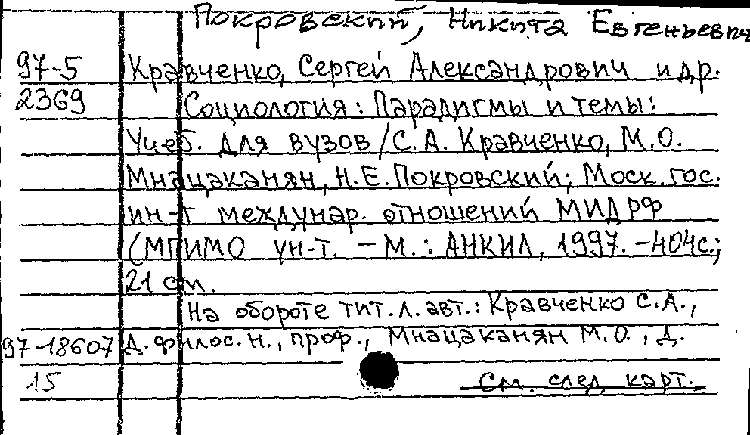 Покровский, Никита Евгеньевич
97-5 Кравченко, Сергей Александрович и др.
2369 Социология: Парадигмы и темы:
Учеб. для вузов / С.А. Кравченко, М.О.
Мнацаканян, Н.Е. Покровский; Моск. гос.
ин-т междунар. отношений МИД РФ
(МГИМО ун-т. - М.: АНКИЛ, 1997. - 404с.;
21 см.
На обороте тит. л. авт.: Кравченко С.А.,
97-18607 д. филос. н., проф., Мнацаканян М.О., д.
15 См. след. карт.